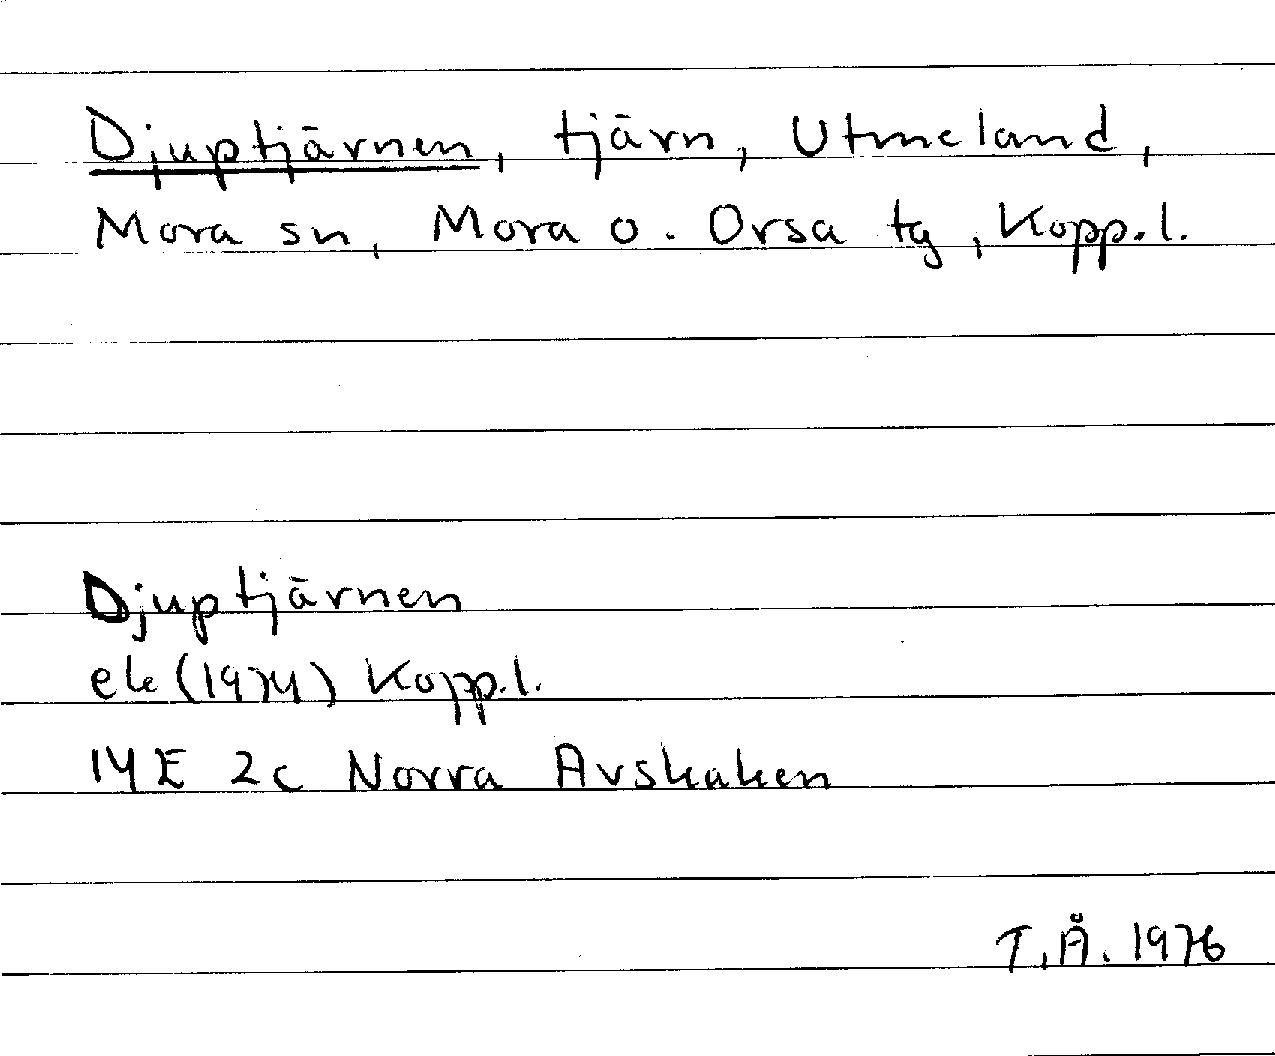 Djuptjärnen, tjärn, Utmeland,
Mora sn, Mora o. Orsa tg, Kopp.l.
Djuptjärnen
ek (1974) Kopp.l.
14E 2c Norra Avskaken
T.Å. 1976